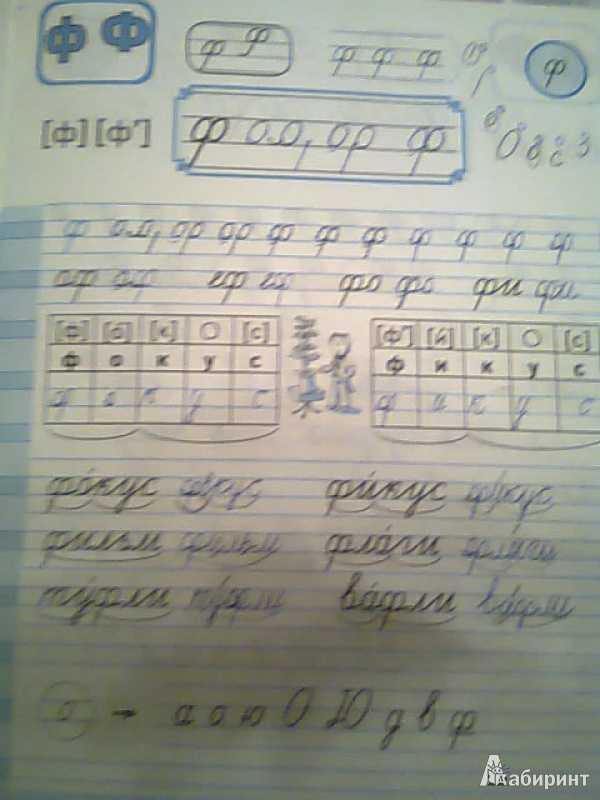 Ф Ф ф ф ф ф ф ф
[ф] [ф'] ф ф
ф ф ф ф ф ф ф ф
аф аф еф еф фо фо фи фи
[ф] [о] [к] [с] [ф'] [и] [к] [с]
ф о к у с ф и к у с
ф о к у с ф и к у с
фо́кус фокус фи́кус фикус
фильм фильм фла́ги флаги
ту́фли туфли ва́фли вафли
о → а о ю О Ю д в ф
Лабиринт